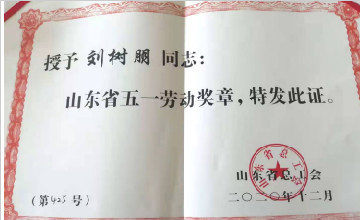 授予刘树朋同志：
山东省五一劳动奖章，特发此证。
山东省总工会
（第425号）
二〇二〇年十二月
山东省总工会